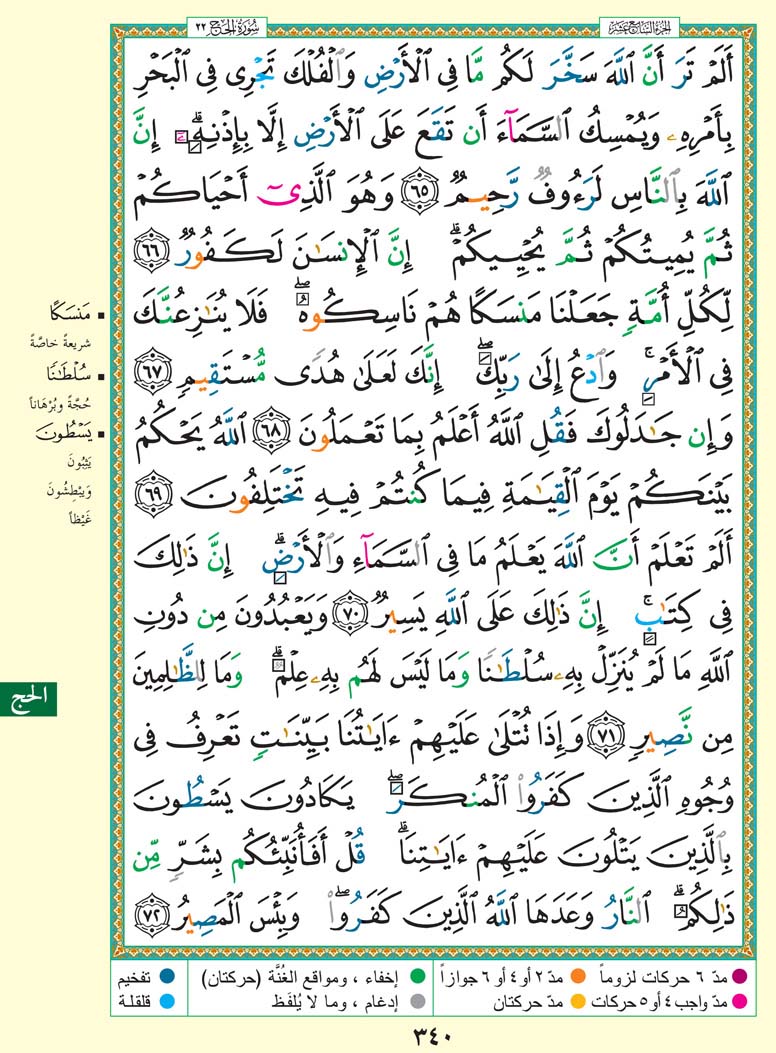 الجزء السابع عشر
سورة الحج ٢٢
أَلَمْ تَرَ أَنَّ ٱللَّهَ سَخَّرَ لَكُم مَّا فِى ٱلْأَرْضِ وَٱلْفُلْكَ تَجْرِى فِى ٱلْبَحْرِ
بِأَمْرِهِۦ وَيُمْسِكُ ٱلسَّمَآءَ أَن تَقَعَ عَلَى ٱلْأَرْضِ إِلَّا بِإِذْنِهِۦٓ ۗ إِنَّ
ٱللَّهَ بِٱلنَّاسِ لَرَءُوفٌ رَّحِيمٌ ٦٥ وَهُوَ ٱلَّذِىٓ أَحْيَاكُمْ
ثُمَّ يُمِيتُكُمْ ثُمَّ يُحْيِيكُمْ ۗ إِنَّ ٱلْإِنسَـٰنَ لَكَفُورٌ ٦٦
لِّكُلِّ أُمَّةٍ جَعَلْنَا مَنسَكًا هُمْ نَاسِكُوهُ ۖ فَلَا يُنَـٰزِعُنَّكَ
فِى ٱلْأَمْرِ ۚ وَٱدْعُ إِلَىٰ رَبِّكَ ۖ إِنَّكَ لَعَلَىٰ هُدًى مُّسْتَقِيمٍ ٦٧
وَإِن جَـٰدَلُوكَ فَقُلِ ٱللَّهُ أَعْلَمُ بِمَا تَعْمَلُونَ ٦٨ ٱللَّهُ يَحْكُمُ
بَيْنَكُمْ يَوْمَ ٱلْقِيَـٰمَةِ فِيمَا كُنتُمْ فِيهِ تَخْتَلِفُونَ ٦٩
أَلَمْ تَعْلَمْ أَنَّ ٱللَّهَ يَعْلَمُ مَا فِى ٱلسَّمَآءِ وَٱلْأَرْضِ ۗ إِنَّ ذَٰلِكَ
فِى كِتَـٰبٍ ۚ إِنَّ ذَٰلِكَ عَلَى ٱللَّهِ يَسِيرٌ ٧٠ وَيَعْبُدُونَ مِن دُونِ
ٱللَّهِ مَا لَمْ يُنَزِّلْ بِهِۦ سُلْطَـٰنًا وَمَا لَيْسَ لَهُم بِهِۦ عِلْمٌ ۗ وَمَا لِلظَّـٰلِمِينَ
مِن نَّصِيرٍ ٧١ وَإِذَا تُتْلَىٰ عَلَيْهِمْ ءَايَـٰتُنَا بَيِّنَـٰتٍ تَعْرِفُ فِى
وُجُوهِ ٱلَّذِينَ كَفَرُوا۟ ٱلْمُنكَرَ ۖ يَكَادُونَ يَسْطُونَ
بِٱلَّذِينَ يَتْلُونَ عَلَيْهِمْ ءَايَـٰتِنَا ۗ قُلْ أَفَأُنَبِّئُكُم بِشَرٍّ مِّن
ذَٰلِكُمُ ۗ ٱلنَّارُ وَعَدَهَا ٱللَّهُ ٱلَّذِينَ كَفَرُوا۟ ۖ وَبِئْسَ ٱلْمَصِيرُ ٧٢
مَنسَكًا
شريعةً خاصّةً
سُلْطَـٰنًا
حُجَّةً وبُرْهَاناً
يَسْطُونَ
يَثِبُونَ
وَيَبْطِشُونَ
غَيْظاً
الحج
مدّ ٦ حركات لزوماً
مدّ ٢ أو ٤ أو ٦ جوازاً
إخفاء ، ومواقع الغُنَّة (حركتان)
تفخيم
مدّ واجب ٤ أو ٥ حركات
مدّ حركتان
إدغام ، وما لا يُلفَظ
قلقلة
٣٤٠